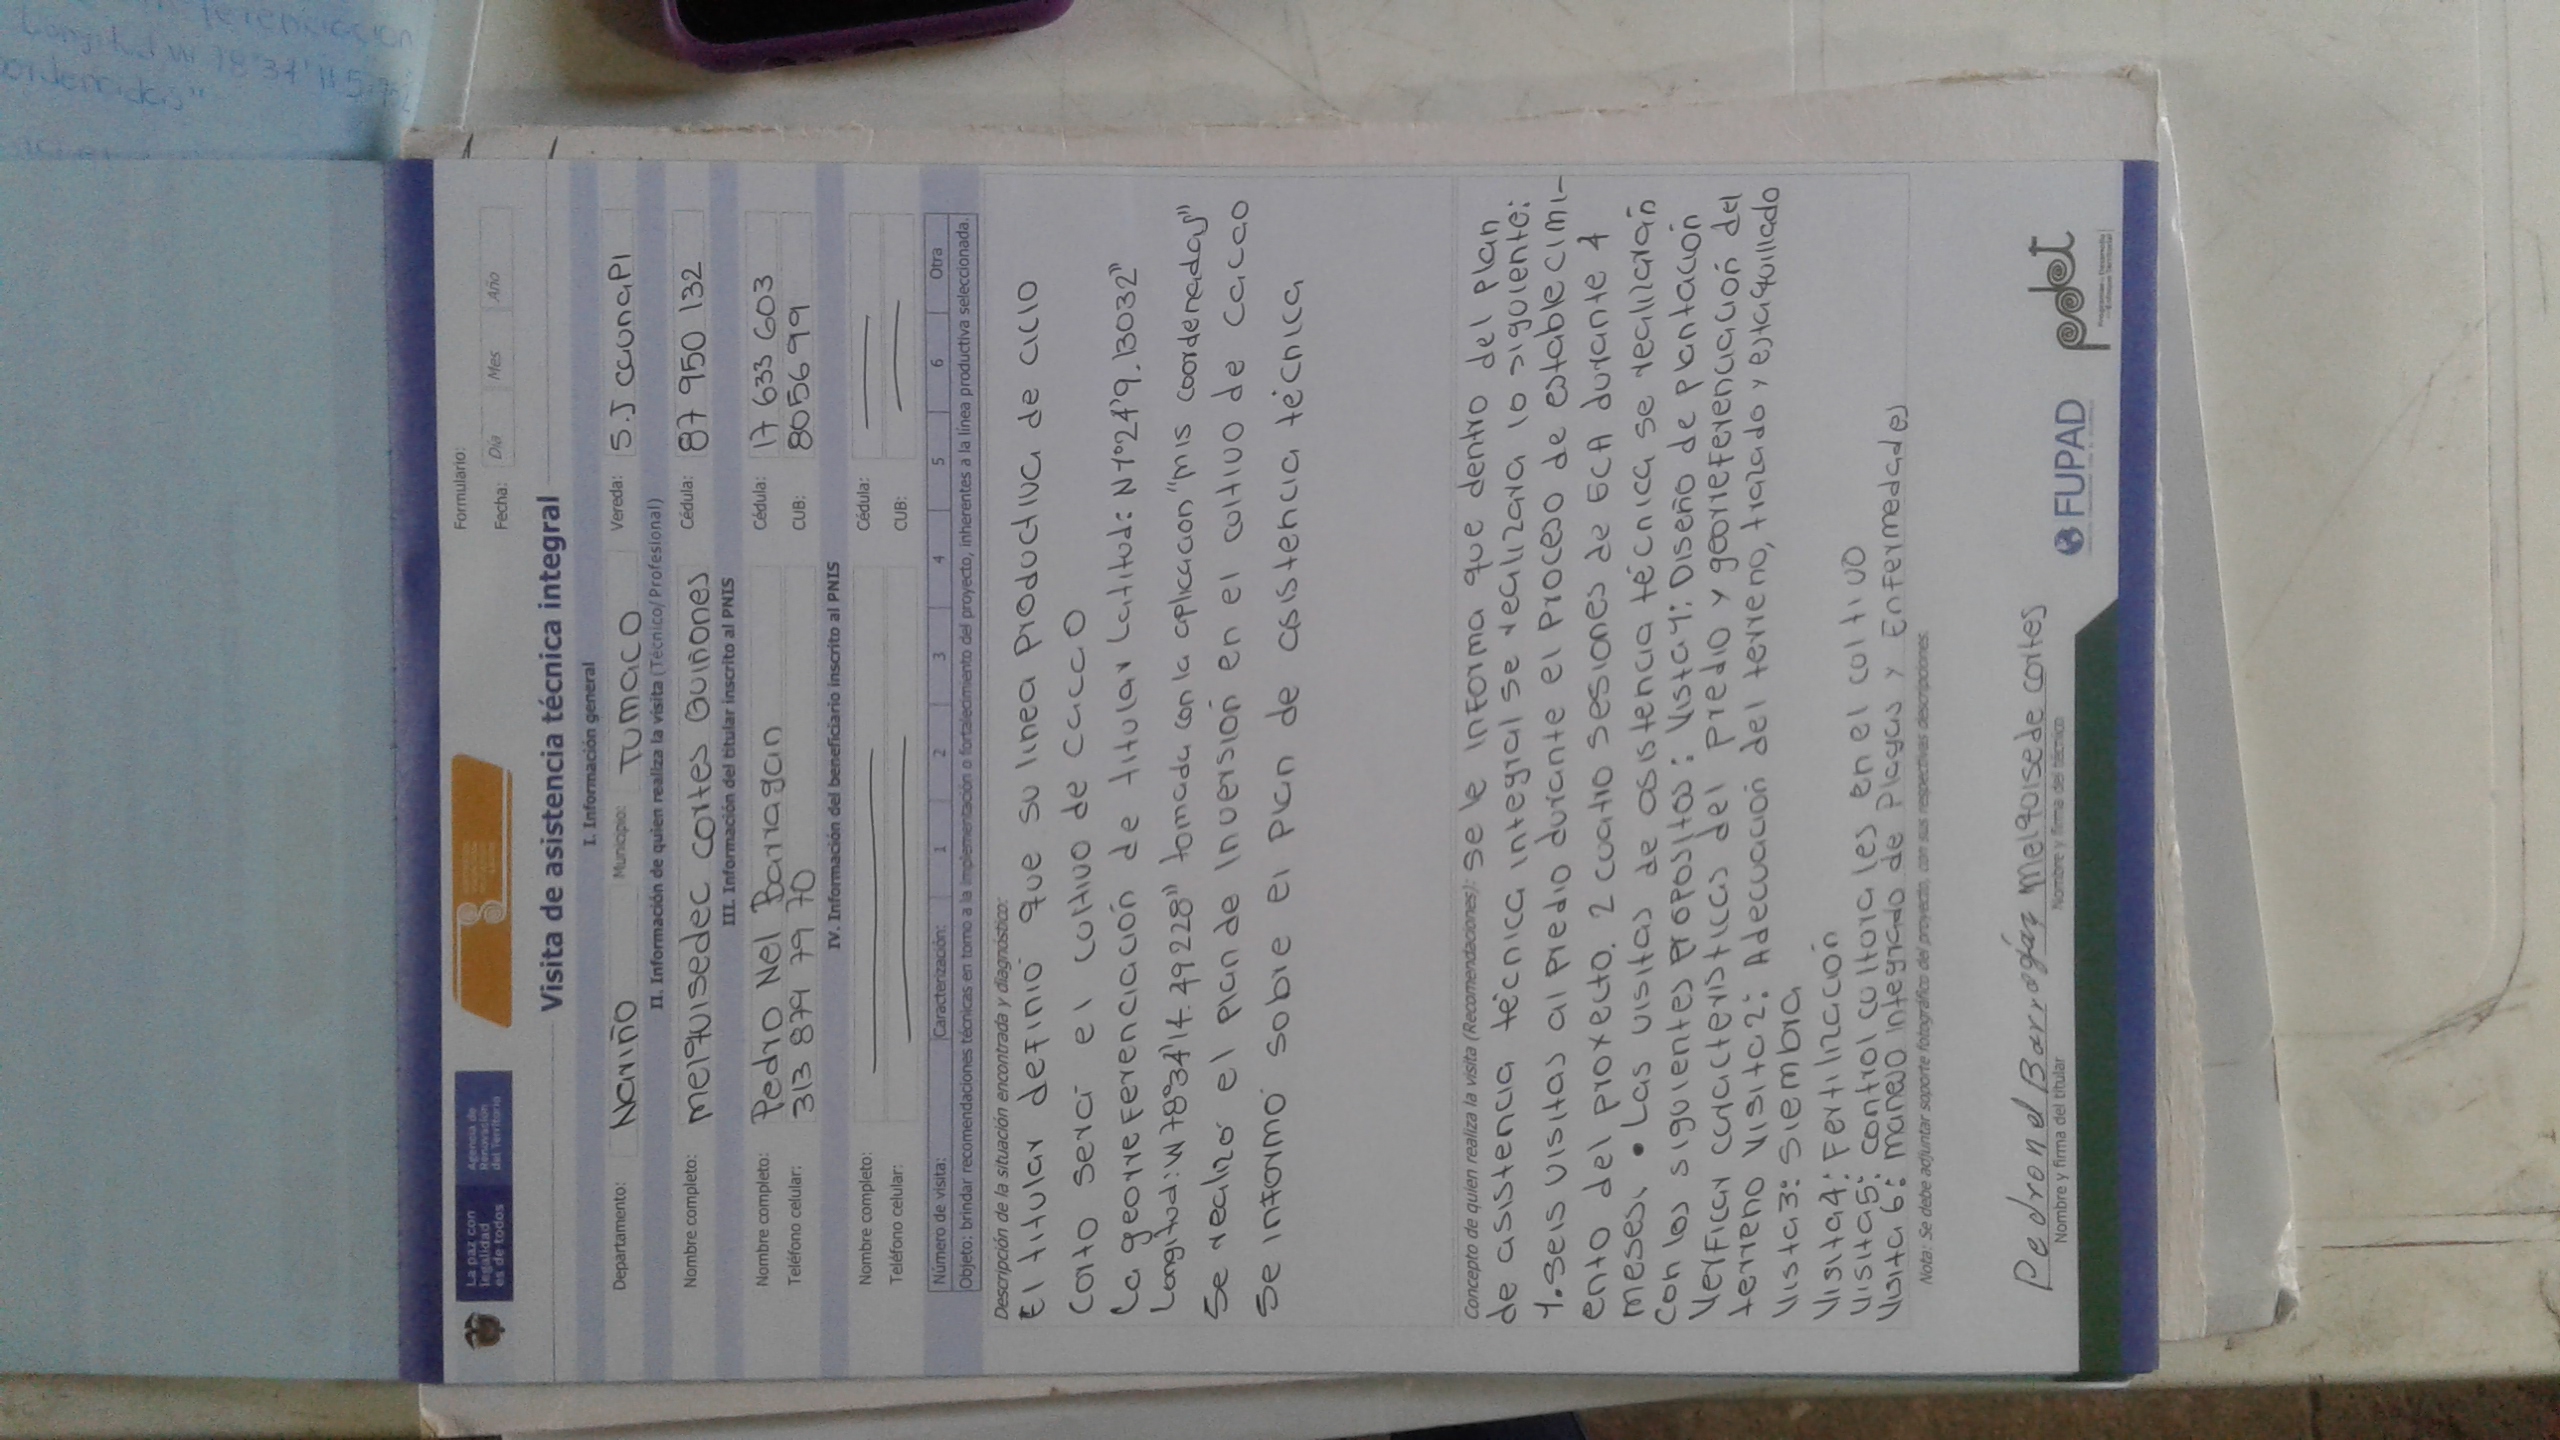 Longitud W 78°34'
La paz con
legalidad
es de todos
Agencia de
Renovación
del Territorio
Formulario:
Fecha: Día Mes Año
Visita de asistencia técnica integral
I. Información general
Departamento: Nariño Municipio: Tumaco Vereda: S.J caunapi
II. Información de quien realiza la visita (Técnico/Profesional)
Nombre completo: melquisedec cortes Quiñones Cédula: 87 950 132
III. Información del titular inscrito al PNIS
Nombre completo: Pedro Nel Barragan Cédula: 17 633 603
Teléfono celular: 313 879 79 70 CUB: 8056 99
IV. Información del beneficiario inscrito al PNIS
Nombre completo: Cédula:
Teléfono celular: CUB:
Número de visita: Caracterización: 1 2 3 4 5 6 Otra
Objeto: brindar recomendaciones técnicas en torno a la implementación o fortalecimiento del proyecto, inherentes a la línea productiva seleccionada.
Descripción de la situación encontrada y diagnóstico:
El titular definió que su linea productiva de ciclo
corto será el cultivo de cacao
La georreferenciación de titular Latitud: N 1°24'9.13032"
Longitud: W 78°34'14.49228" tomada con la aplicacion "mis coordenadas"
Se realizó el plan de inversión en el cultivo de cacao
Se informó sobre el plan de asistencia técnica
Concepto de quien realiza la visita (Recomendaciones): se le informa que dentro del plan
de asistencia técnica integral se realizara lo siguiente:
1. seis visitas al predio durante el proceso de establecimi-
ento del proyecto. 2 cuatro sesiones de ECA durante 4
meses. • Las visitas de asistencia técnica se realizarán
con los siguientes propositos: Vista 1: Diseño de plantación
Verficar caracteristicas del predio y georreferenciación del
terreno Visita 2: Adecuación del terreno, trazado y estaquillado
Vista 3: Siembra
Visita 4: Fertilización
Visita 5: control culturales en el cultivo
Visita 6: manejo integrado de plagas y Enfermedades
Nota: Se debe adjuntar soporte fotográfico del proyecto, con sus respectivas descripciones.
Pedro nel Barragán Melquisedec cortes
Nombre y firma del titular Nombre y firma del técnico
FUPAD
pdet